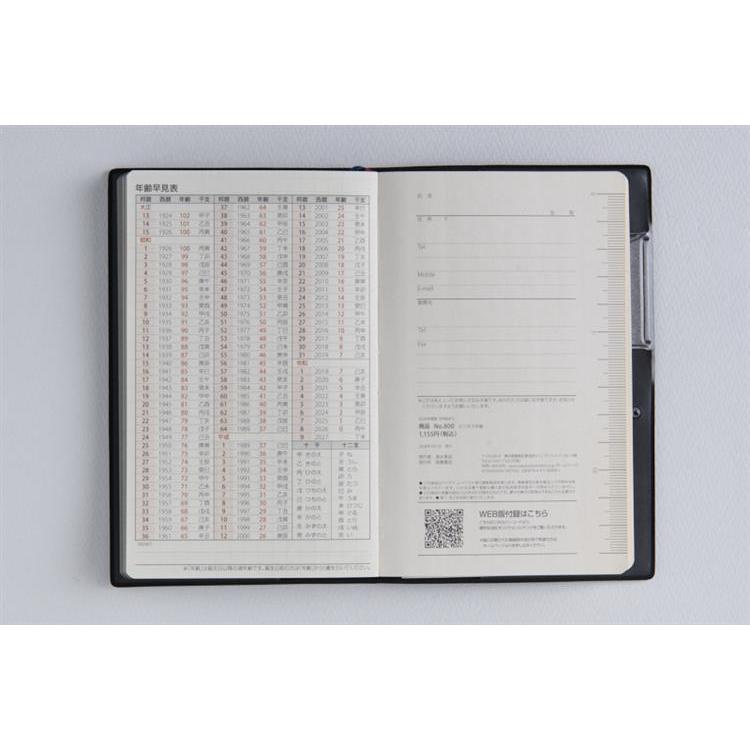 年齢早見表
邦暦 西暦 年齢 干支
大正
13 1924 102 甲子
14 1925 101 乙丑
15 1926 100 丙寅
昭和
1 1926 100 丙寅
2 1927 99 丁卯
3 1928 98 戊辰
4 1929 97 己巳
5 1930 96 庚午
6 1931 95 辛未
7 1932 94 壬申
8 1933 93 癸酉
9 1934 92 甲戌
10 1935 91 乙亥
11 1936 90 丙子
12 1937 89 丁丑
13 1938 88 戊寅
14 1939 87 己卯
15 1940 86 庚辰
16 1941 85 辛巳
17 1942 84 壬午
18 1943 83 癸未
19 1944 82 甲申
20 1945 81 乙酉
21 1946 80 丙戌
22 1947 79 丁亥
23 1948 78 戊子
24 1949 77 己丑
25 1950 76 庚寅
26 1951 75 辛卯
27 1952 74 壬辰
28 1953 73 癸巳
29 1954 72 甲午
30 1955 71 乙未
31 1956 70 丙申
32 1957 69 丁酉
33 1958 68 戊戌
34 1959 67 己亥
35 1960 66 庚子
36 1961 65 辛丑
邦暦 西暦 年齢 干支
37 1962 64 壬寅
38 1963 63 癸卯
39 1964 62 甲辰
40 1965 61 乙巳
41 1966 60 丙午
42 1967 59 丁未
43 1968 58 戊申
44 1969 57 己酉
45 1970 56 庚戌
46 1971 55 辛亥
47 1972 54 壬子
48 1973 53 癸丑
49 1974 52 甲寅
50 1975 51 乙卯
51 1976 50 丙辰
52 1977 49 丁巳
53 1978 48 戊午
54 1979 47 己未
55 1980 46 庚申
56 1981 45 辛酉
57 1982 44 壬戌
58 1983 43 癸亥
59 1984 42 甲子
60 1985 41 乙丑
61 1986 40 丙寅
62 1987 39 丁卯
63 1988 38 戊辰
64 1989 37 己巳
平成
1 1989 37 己巳
2 1990 36 庚午
3 1991 35 辛未
4 1992 34 壬申
5 1993 33 癸酉
6 1994 32 甲戌
7 1995 31 乙亥
8 1996 30 丙子
9 1997 29 丁丑
10 1998 28 戊寅
11 1999 27 己卯
12 2000 26 庚辰
邦暦 西暦 年齢 干支
13 2001 25 辛巳
14 2002 24 壬午
15 2003 23 癸未
16 2004 22 甲申
17 2005 21 乙酉
18 2006 20 丙戌
19 2007 19 丁亥
20 2008 18 戊子
21 2009 17 己丑
22 2010 16 庚寅
23 2011 15 辛卯
24 2012 14 壬辰
25 2013 13 癸巳
26 2014 12 甲午
27 2015 11 乙未
28 2016 10 丙申
29 2017 9 丁酉
30 2018 8 戊戌
31 2019 7 己亥
令和
1 2019 7 己亥
2 2020 6 庚子
3 2021 5 辛丑
4 2022 4 壬寅
5 2023 3 癸卯
6 2024 2 甲辰
7 2025 1 乙巳
8 2026 0 丙午
9 2027 丁未
十干 十二支
甲 きのえ 子 ね
乙 きのと 丑 うし
丙 ひのえ 寅 とら
丁 ひのと 卯 う
戊 つちのえ 辰 たつ
己 つちのと 巳 み
庚 かのえ 午 うま
辛 かのと 未 ひつじ
壬 みずのえ 申 さる
癸 みずのと 酉 とり
戌 いぬ
亥 い
氏名
住所 〒
Tel.
Mobile
E-mail
勤務先
Tel
Fax
商品 No.800
1,155円(税込)
WEB版付録はこちら